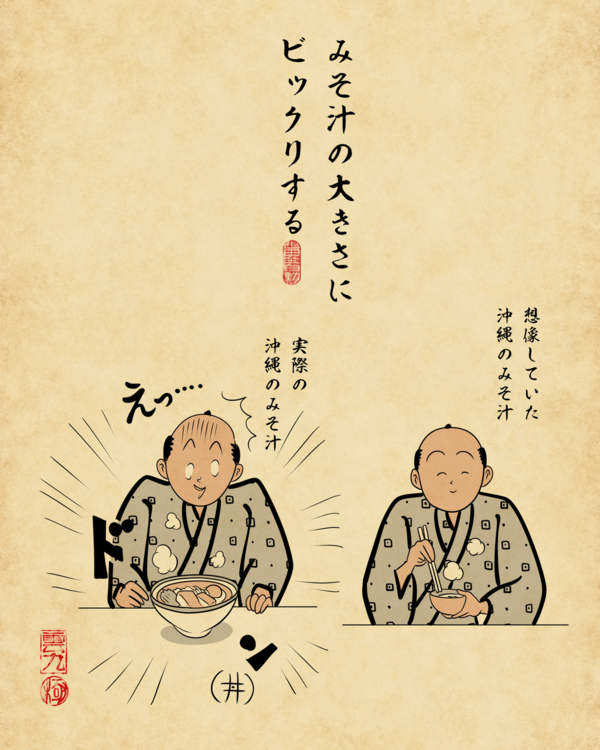 みそ汁の大きさに
ビックリする
想像していた
沖縄のみそ汁
実際の
沖縄のみそ汁
えっ‥‥
ドン
(丼)